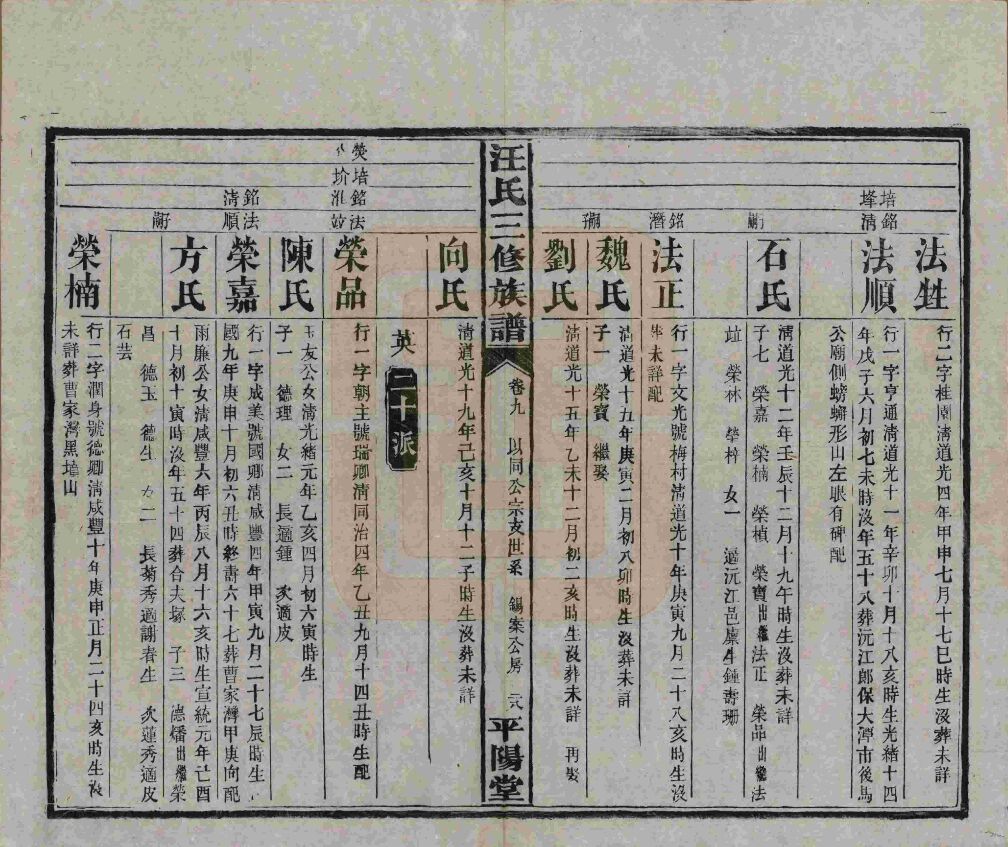 法甡
行二字桂園清道光四年甲申七月十七巳時生沒葬未詳
培
銘清
法順
行一字亨通清道光十一年辛卯十月十八亥時生光緒十四
年戊子六月初七未時沒年五十八葬沅江郎保大潭市後馬
公廟側螃蠏形山左眼有碑配
石氏
清道光十二年壬辰十二月十九午時生沒葬未詳
子七 榮嘉 榮楠 榮楨 榮寶出繼法正 榮品出繼法
竝 榮林 榮梓 女一 適沅江邑廩生鍾壽珊
銘潛
法正
行一字文光號梅村清道光十年庚寅九月二十八亥時生沒
葬未詳配
魏氏
清道光十五年庚寅二月初八卯時生沒葬未詳
子一 榮寶 繼娶
劉氏
清道光十五年乙未十二月初二亥時生沒葬未詳 再娶
汪氏三修族譜 卷九 以同公宗支世系 錫案公房 平陽堂
向氏
清道光十九年己亥十月十二子時生沒葬未詳
英二十派
熒
培
銘淮
法竝
榮品
行一字朝主號瑞卿清同治四年乙丑九月十四丑時生配
陳氏
玉友公女清光緒元年乙亥四月初六寅時生
子一 德理 女二 長適鍾 次適皮
銘清
法順
榮嘉
行一字成美號國卿清咸豐四年甲寅九月二十七辰時生
國九年庚申十月初六丑時終壽六十七葬曹家灣甲庚向配
方氏
雨廉公女清咸豐六年丙辰八月十六亥時生宣統元年己酉
十月初十寅時沒年五十四葬合夫塚 子三 德燔出繼榮
昌 德玉 德生 女二 長菊秀適謝春生 次蓮秀適皮
石芸
榮楠
行二字潤身號德卿清咸豐十年庚申正月二十四亥時生沒
未詳葬曹家灣黑墳山